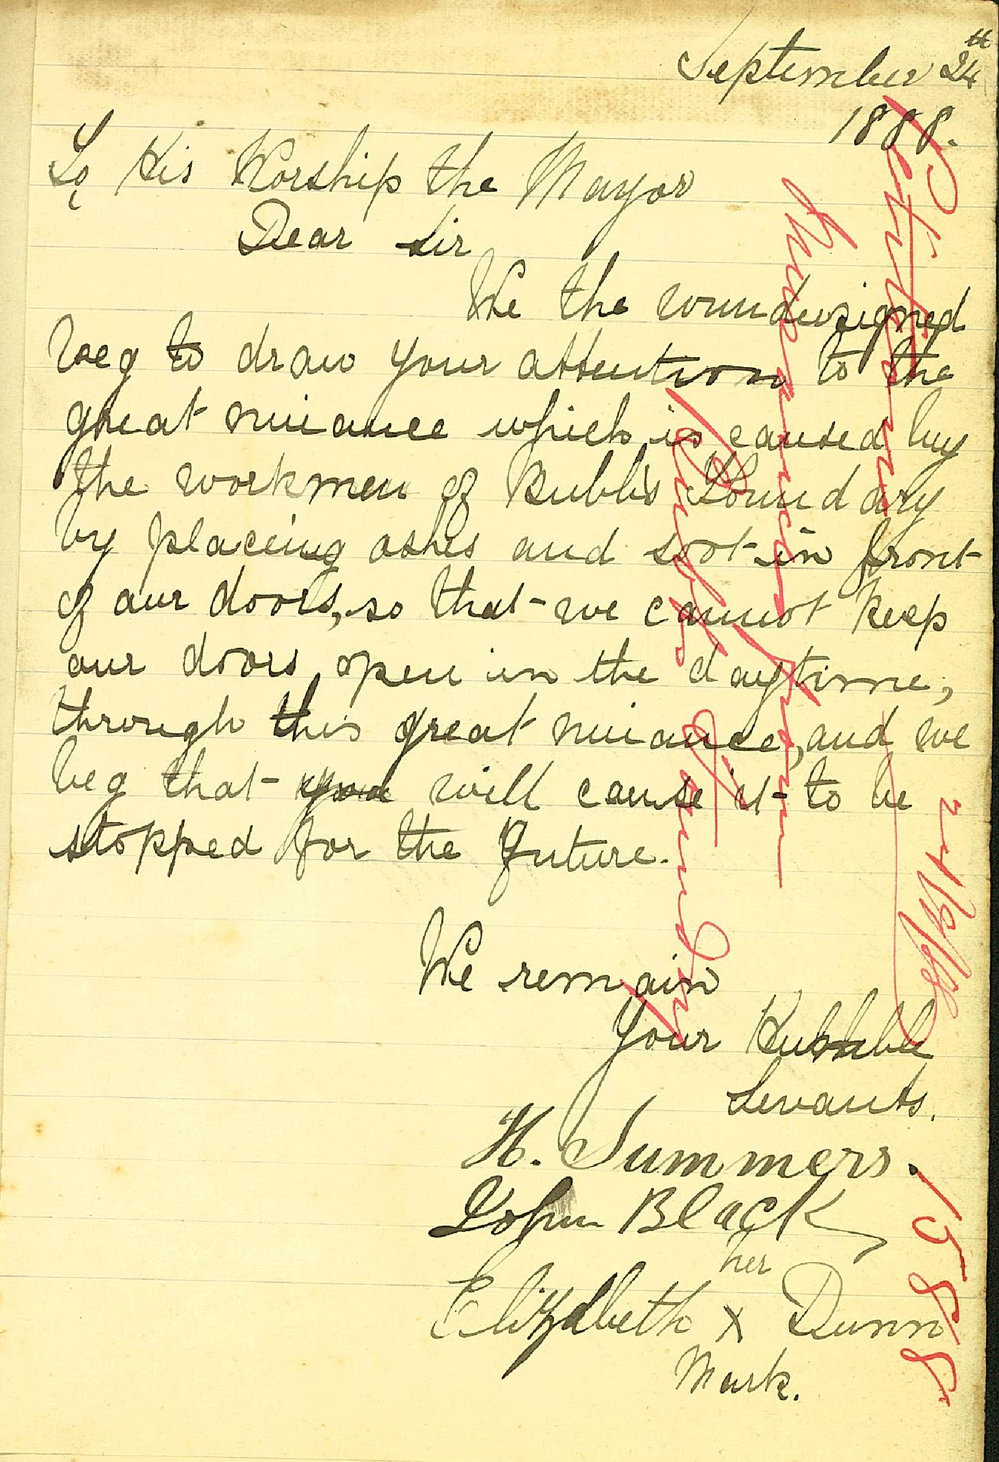 September 24th
1888.
To His Worship the Mayor
Dear Sir
We the wundersigned
beg to draw your attention to the
great nuiance which is caused by
the workmen of Bubb's Foundary
by placeing ashes and soot in front
of our doors, so that we cannot keep
our doors open in the daytime,
through this great nuiance, and we
beg that you will cause it to be
stopped for the future.
We remain
Your Hubmble
Servants.
H. Summers.
John Black
her
Elizabeth x Dunn
Mark.
Petition
Nuisances from
Bubb's Foundry
1588